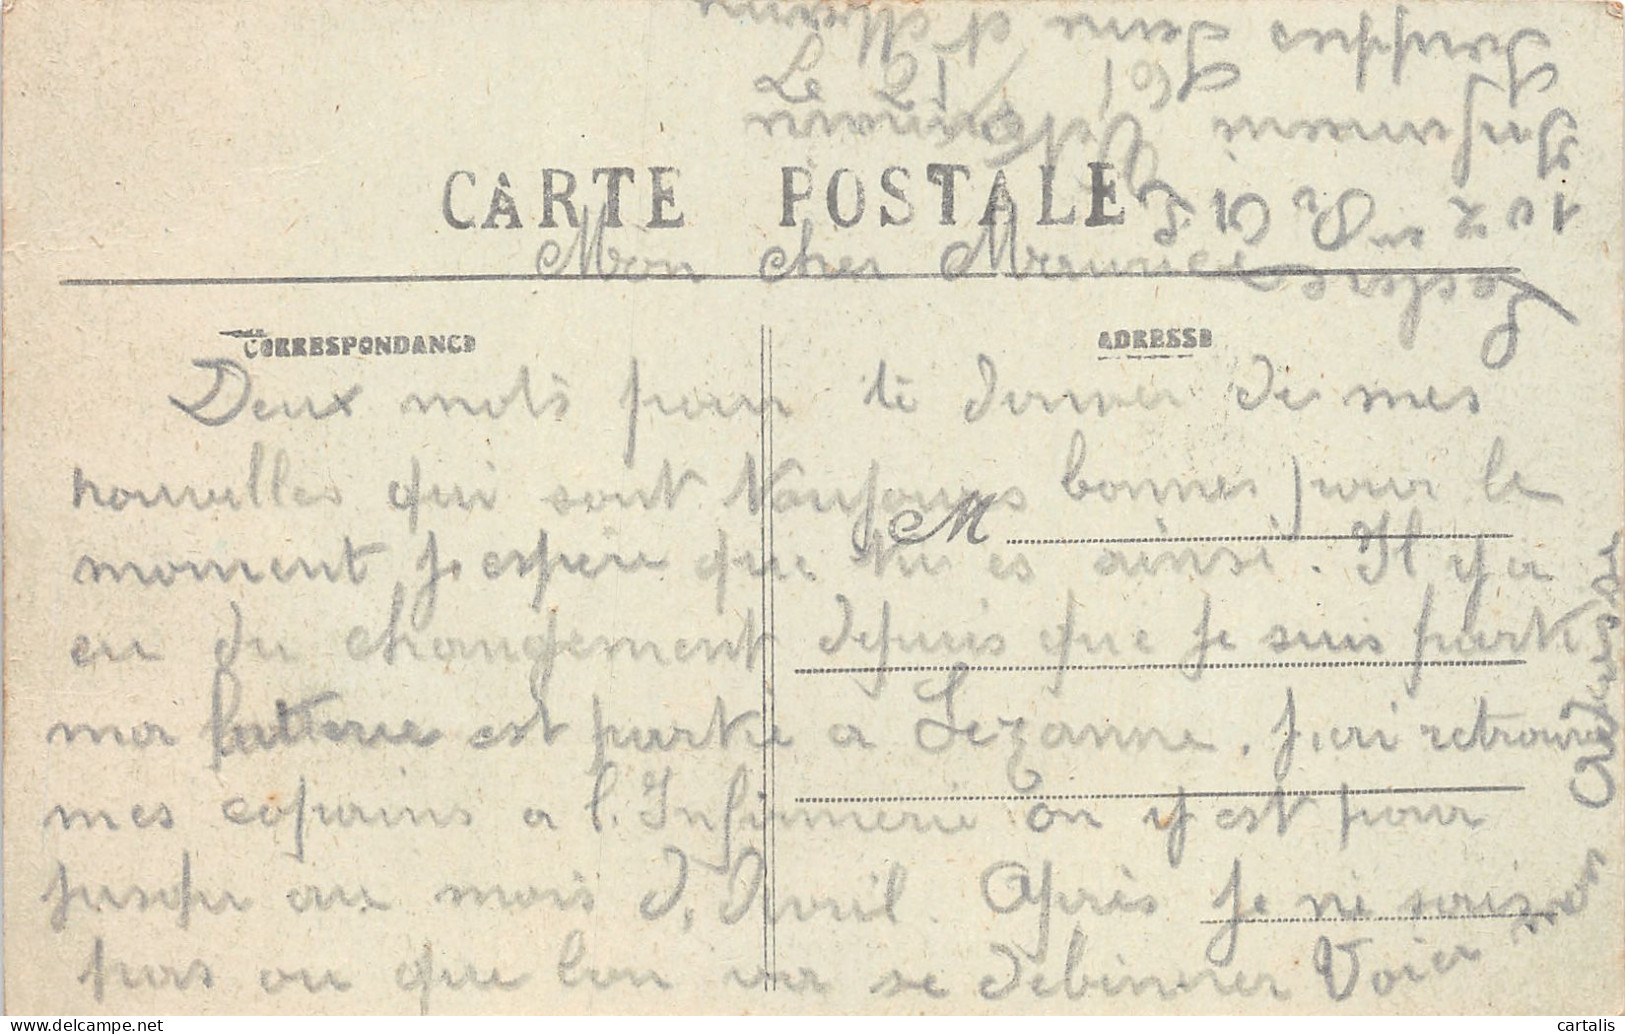 CARTE POSTALE
Mon cher Maurice
CORRESPONDANCE
ADRESSE
Deux mots pour te donner de mes
nouvelles qui sont toujours bonnes pour le
M
moment j.espère que tu es ainsi. Il y a
eu du changement depuis que je suis parti
ma batterie est partie a Sezanne. j.ai retrouvé
mes copains a l.Infirmerie on y est pour
jusqu au mois d.Avril. Après je ne sais
pas ou que l'on va se debinner Voici mon Adresse
102
Infirmerie Vétérinaire
Jouppes Seine et Marne
Le
cartalis